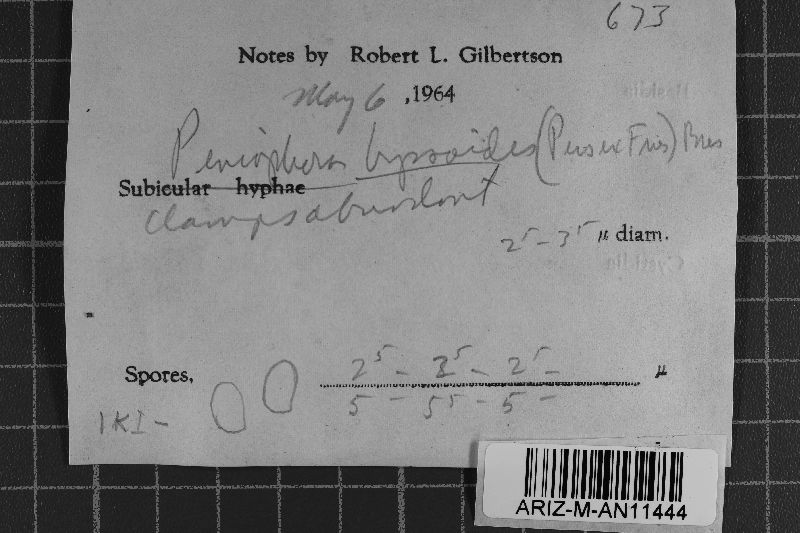 673
Notes by Robert L. Gilbertson
May 6 ,1964
Peniophora byssoides (Pers ex Fries) Bres
Subicular hyphae
Clamps abundant
2⁵ - 3⁵ µ diam.
Spores, 2⁵ - 3⁵ - 2⁵ - µ
5 - 5⁵ - 5 -
IKI -
ARIZ-M-AN11444